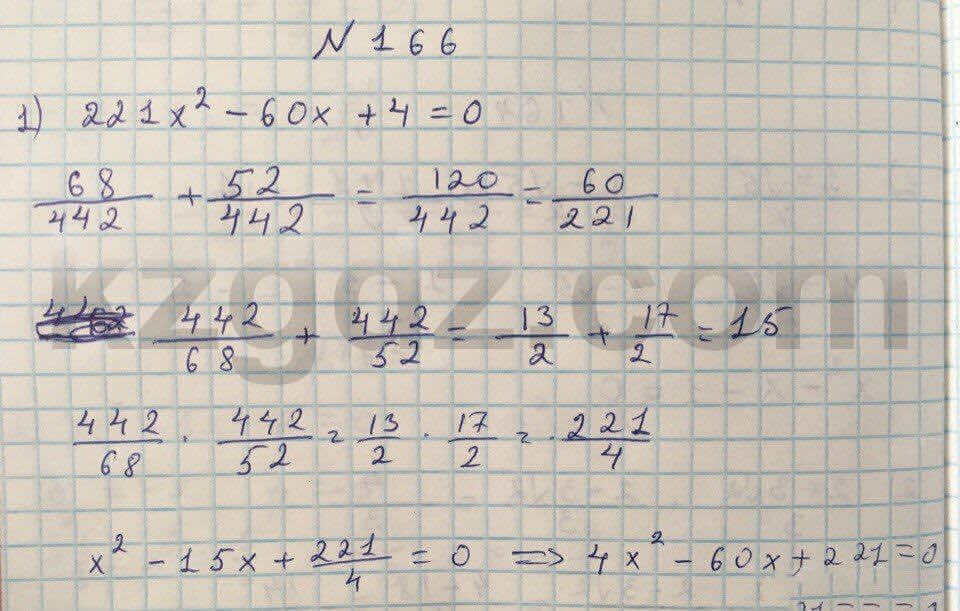 N 166
1) 221x² - 60x + 4 = 0
68/442 + 52/442 = 120/442 = 60/221
442/68 + 442/52 = 13/2 + 17/2 = 15
442/68 · 442/52 = 13/2 · 17/2 = 221/4
x² - 15x + 221/4 = 0 => 4x² - 60x + 221 = 0
kzgdz.com